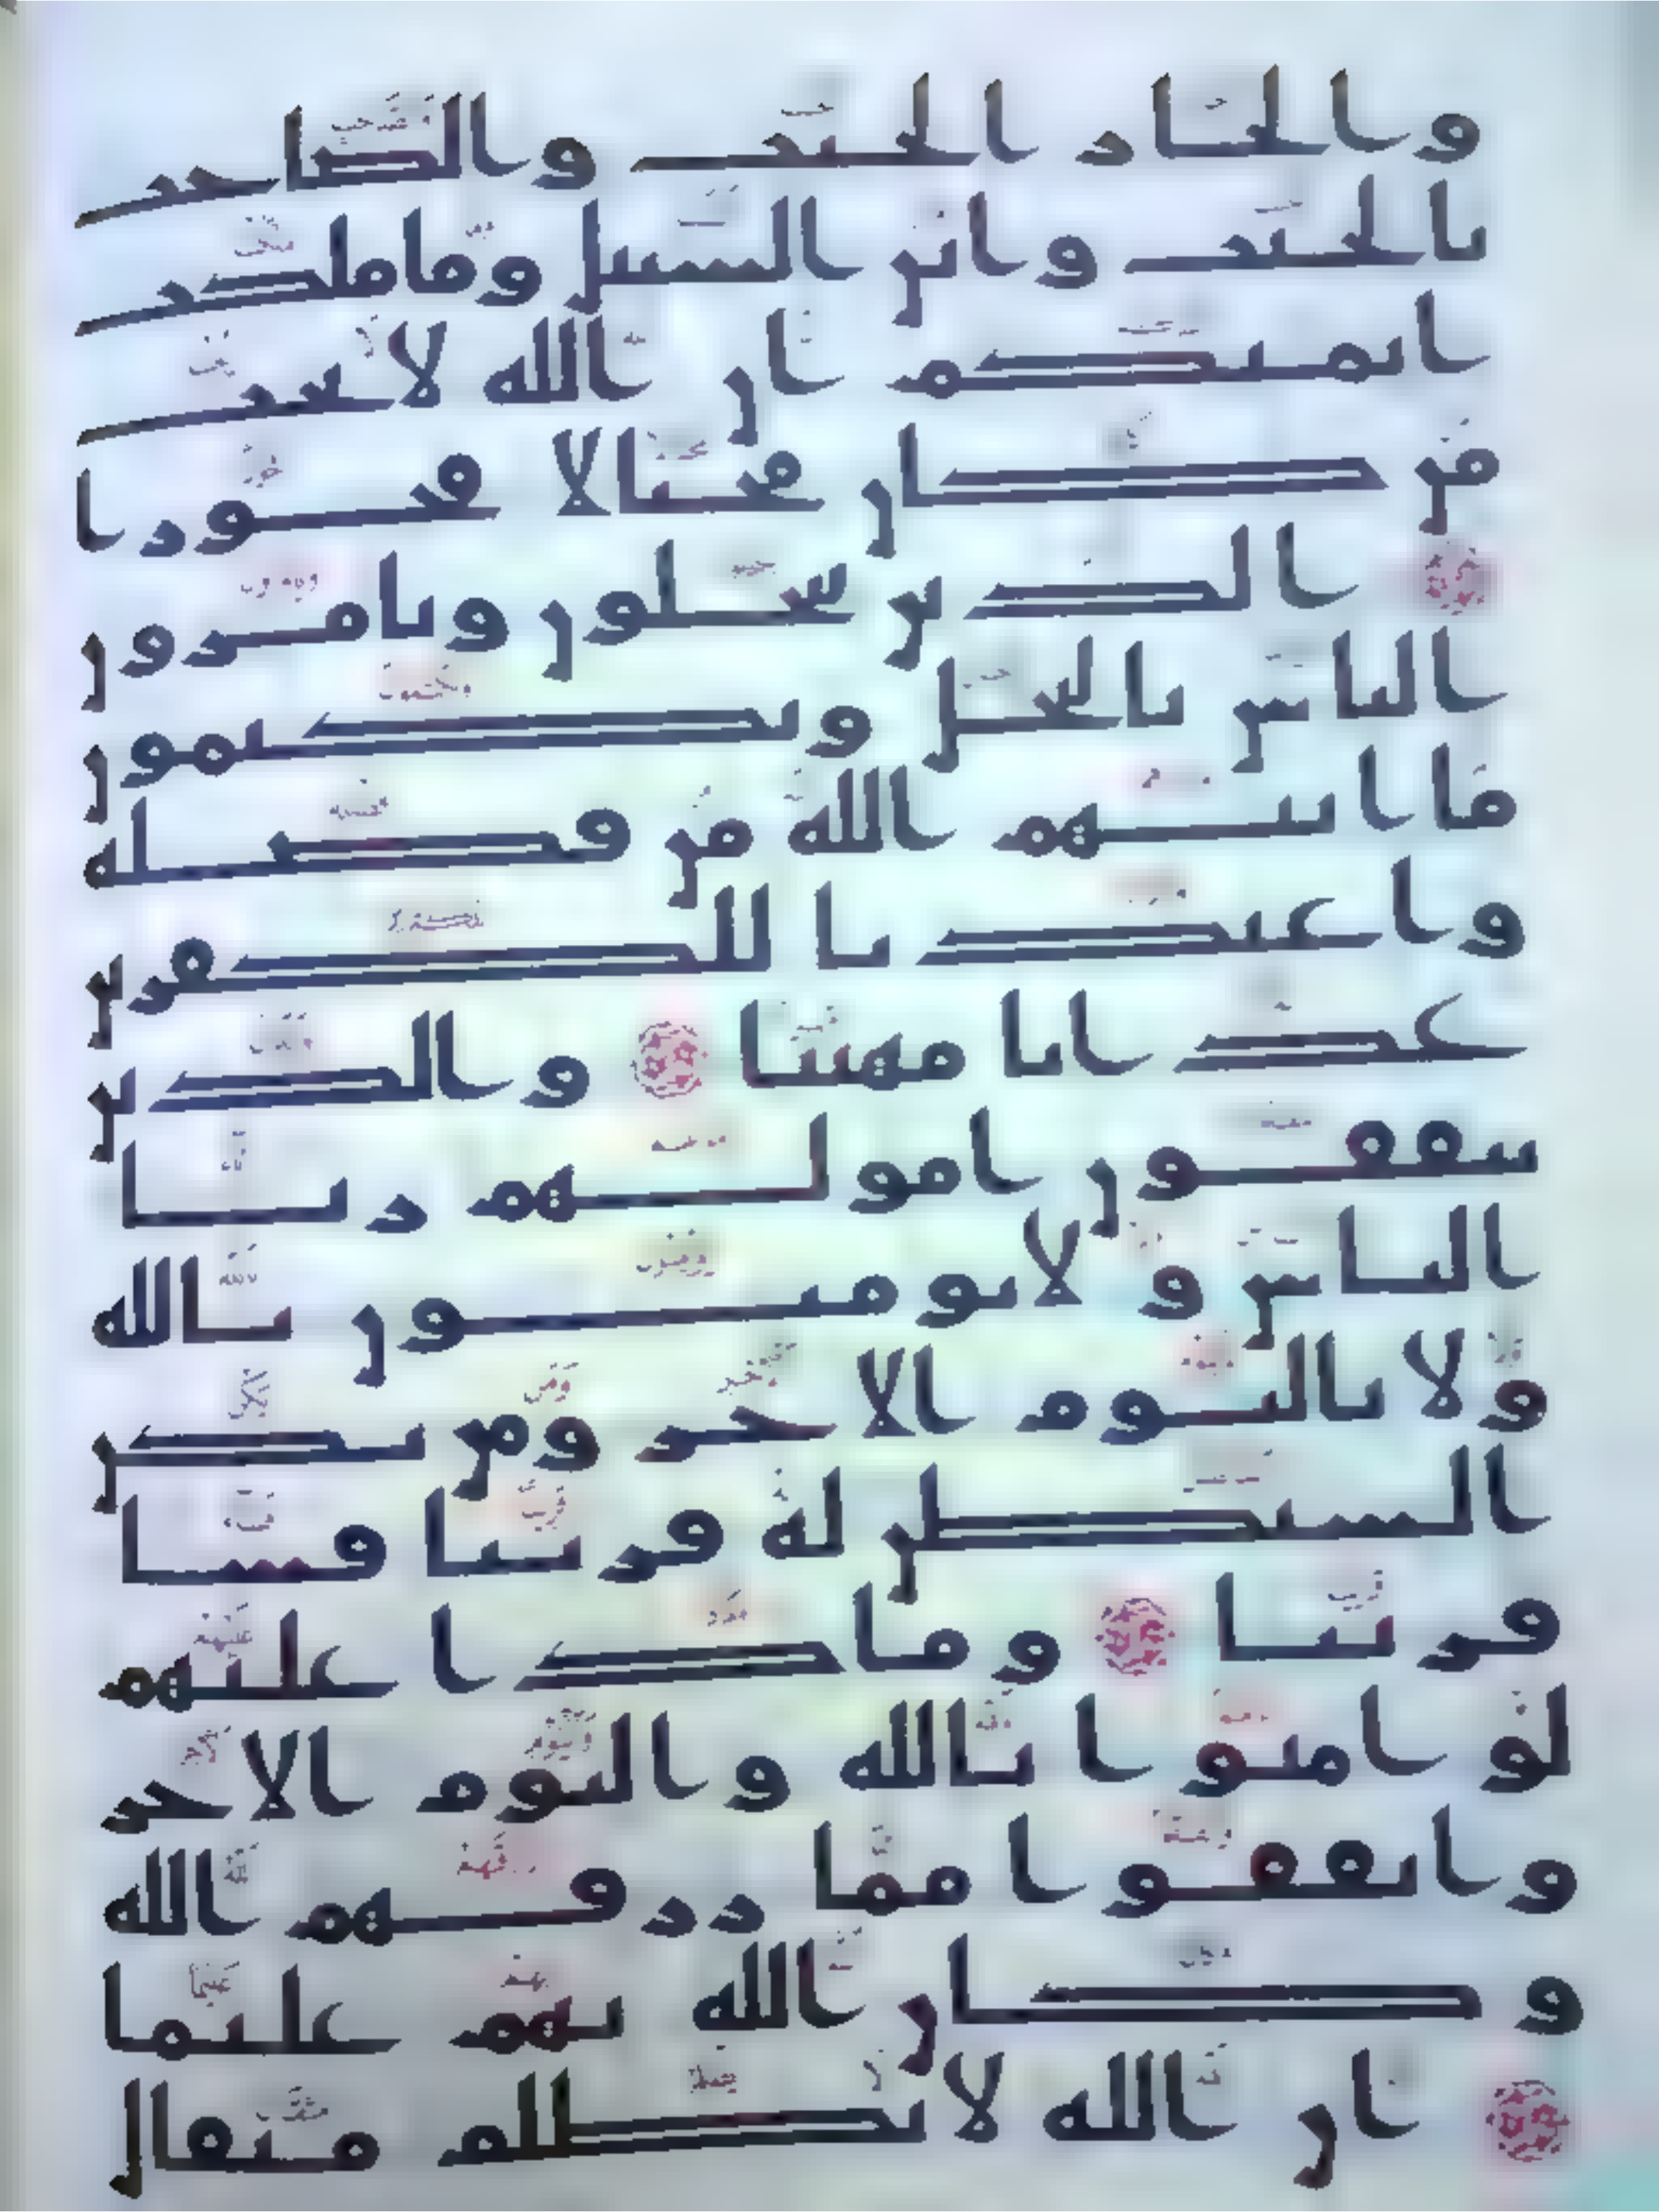 والجار الجنب والصاحب
بالجنب وابن السبيل وما ملكت
ايمنكم ان الله لا يحب
من كان مختالا فخورا
الذين يبخلون ويامرون
الناس بالبخل ويكتمون
ما اتيهم الله من فضله
واعتدنا للكفرين
عذابا مهينا والذين
ينفقون امولهم ريا
الناس ولا يومنون بالله
ولا باليوم الاخر ومن يكن
الشيطن له قرينا فسا
قرينا وماذا عليهم
لو امنوا بالله واليوم الاخر
وانفقوا مما رزقهم الله
وكان الله بهم عليما
ان الله لا يظلم مثقال